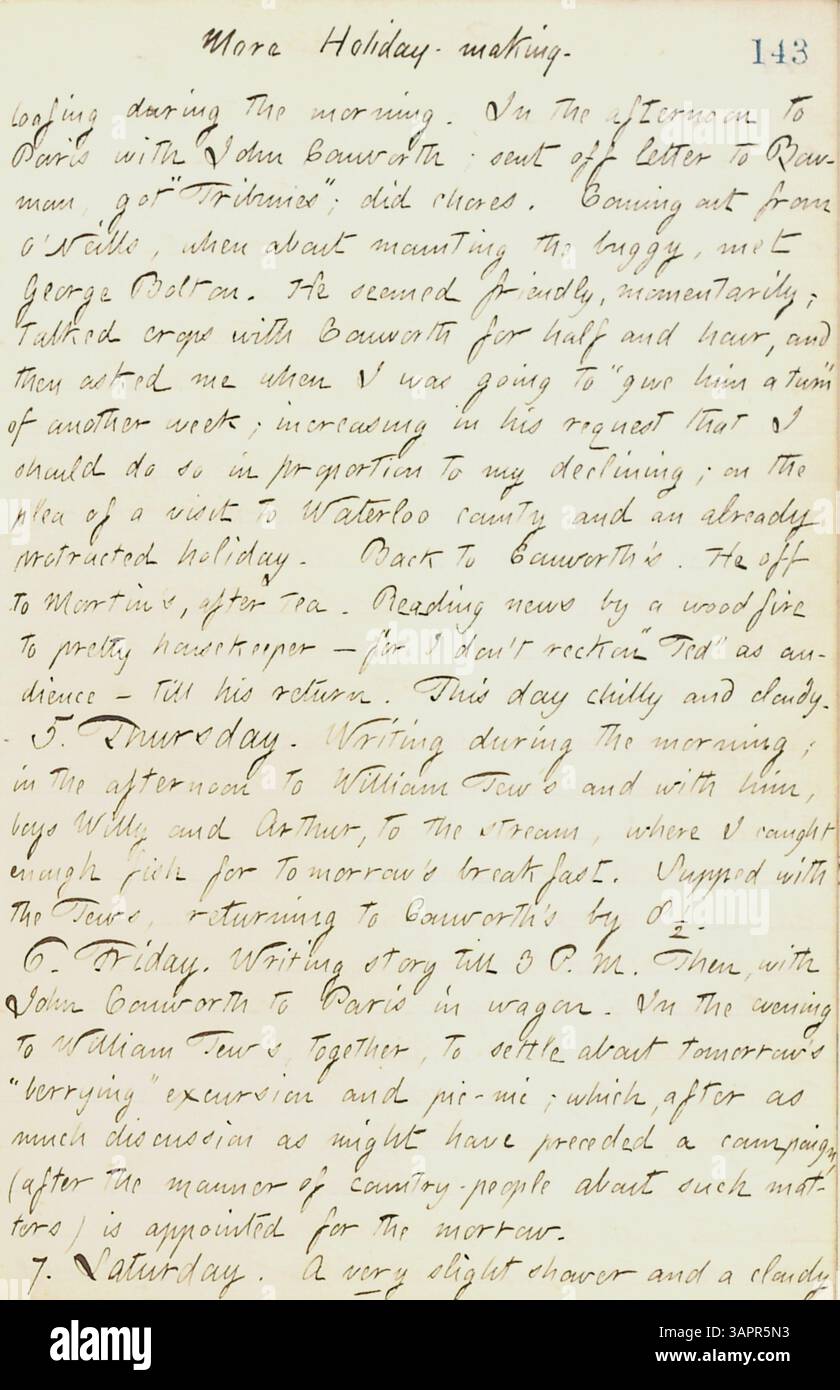 More Holiday-making-
143
loafing during the morning. In the afternoon to
Paris with John Conworth; sent off letter to Bow-
man, got "Tribunes"; did chores. Coming out from
O'Neills, when about mounting the buggy, met
George Bolton. He seemed friendly, momentarily;
talked crops with Conworth for half and hour, and
then asked me when I was going to "give him a turn"
of another week; increasing in his request that I
should do so in proportion to my declining; on the
plea of a visit to Waterloo county and an already
protracted holiday. Back to Conworth's. He off
to Martin's, after tea. Reading news by a wood fire
to pretty housekeeper — for I don't reckon "Ted" as au-
dience — till his return. This day chilly and cloudy.
5. Thursday. Writing during the morning;
in the afternoon to William Tew's and with him,
boys Willy and Arthur, to the stream, where I caught
enough fish for tomorrow's breakfast. Supped with
the Tews, returning to Conworth's by 8 1/2.
6. Friday. Writing story till 3 P. M. Then, with
John Conworth to Paris in wagon. In the evening
to William Tew's, together, to settle about tomorrow's
"berrying" excursion and pic-nic; which, after as
much discussion as might have preceded a campaign
(after the manner of country-people about such mat-
ters) is appointed for the morrow.
7. Saturday. A very slight shower and a cloudy
alamy
Image ID: 3APR5N3
www.alamy.com